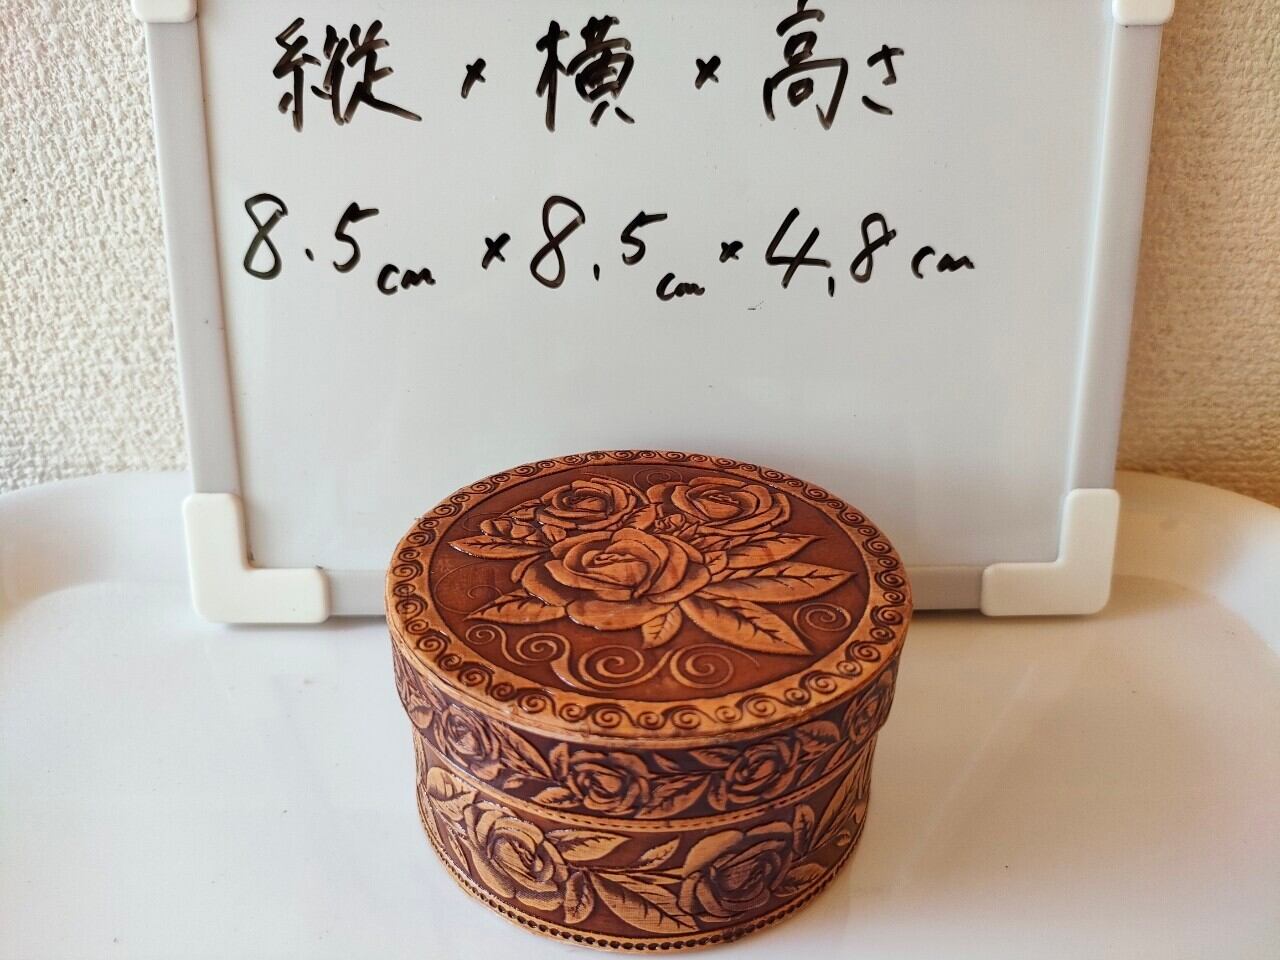 縦 × 横 × 高さ
8.5cm × 8.5cm × 4.8cm